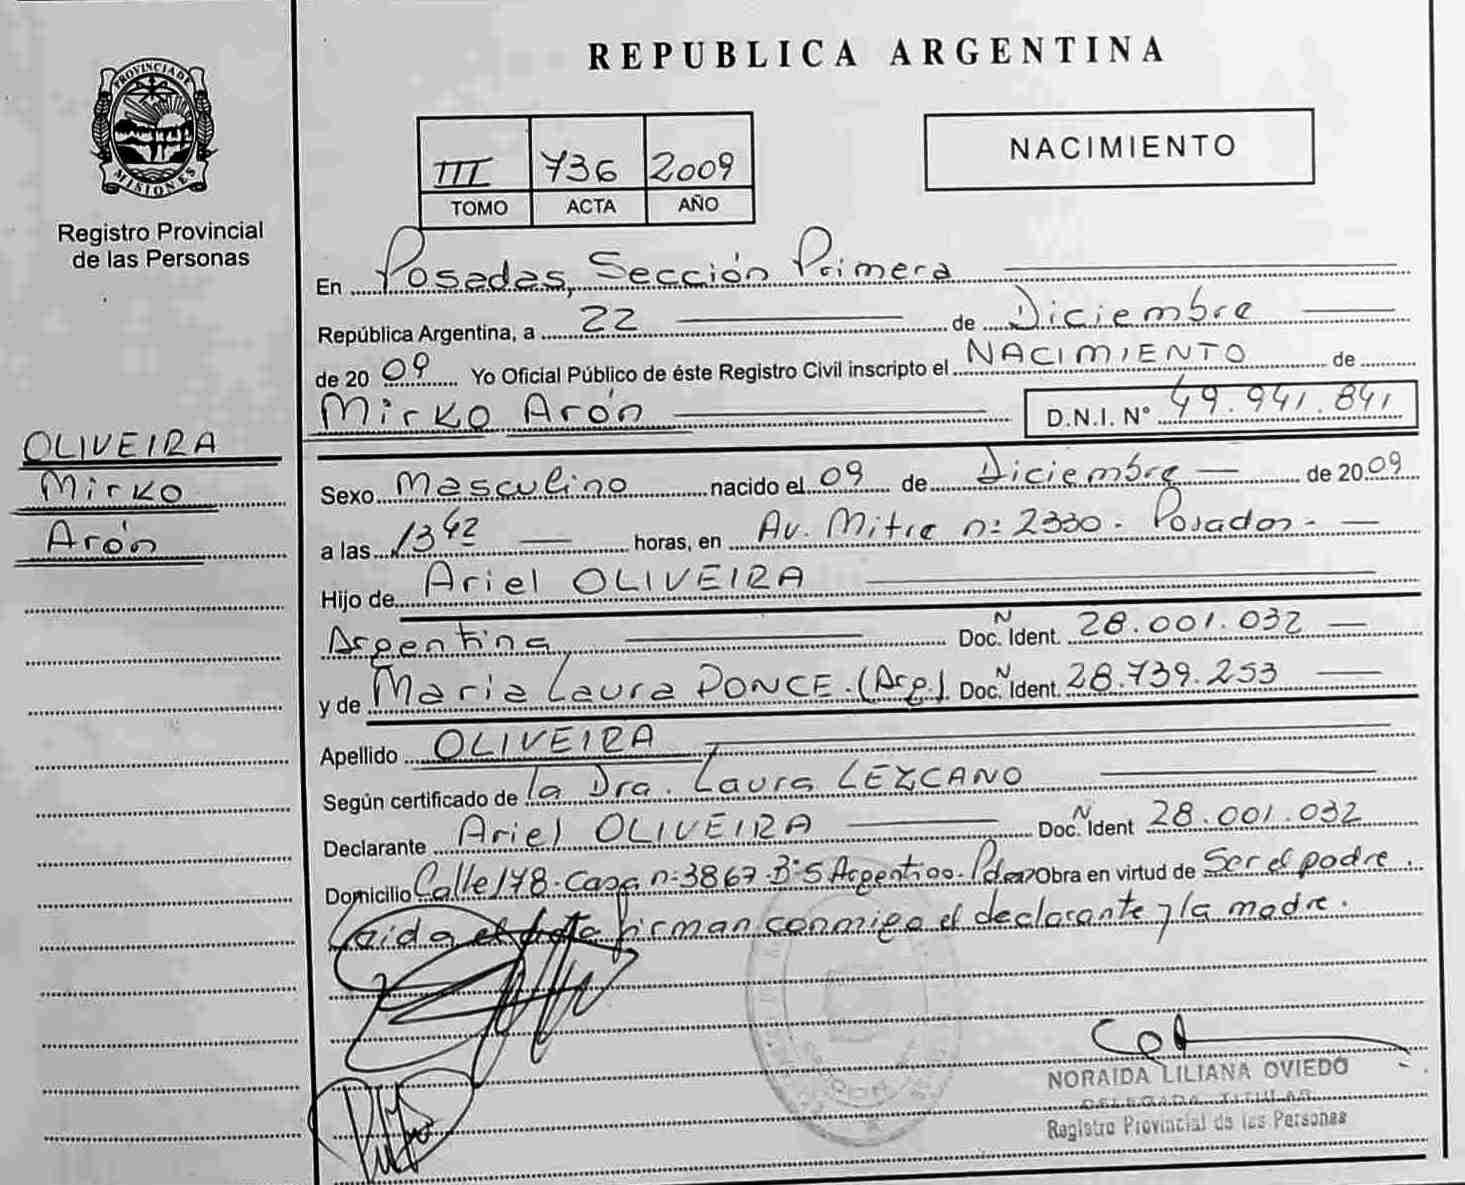 REPUBLICA ARGENTINA
PROVINCIA DE
MISIONES
Registro Provincial
de las Personas
III 736 2009
TOMO ACTA AÑO
NACIMIENTO
En Posadas, Sección Primera
República Argentina, a 22 de Diciembre
de 2009 Yo Oficial Público de éste Registro Civil inscripto el NACIMIENTO de
Mirko Arón D.N.I. Nº 49.941.841
OLIVEIRA
Mirko
Arón
Sexo Masculino nacido el 09 de Diciembre de 2009
a las 13 42 horas, en Av. Mitre nº 2330 - Posadas -
Hijo de Ariel OLIVEIRA
Argentina Doc. N Ident. 28.001.032
y de Maria Laura PONCE. (Arg.) Doc. N Ident. 28.739.253
Apellido OLIVEIRA
Según certificado de la Dra. Laura LEZCANO
Declarante Ariel OLIVEIRA Doc. N Ident 28.001.032
Domicilio Calle 178 - Casa nº 3867 - Bº S Argentino - Pdas Obra en virtud de Ser el padre.
Leida el acta firman conmigo el declarante y la madre.
NORAIDA LILIANA OVIEDO
DELEGADA TITULAR
Registro Provincial de las Personas